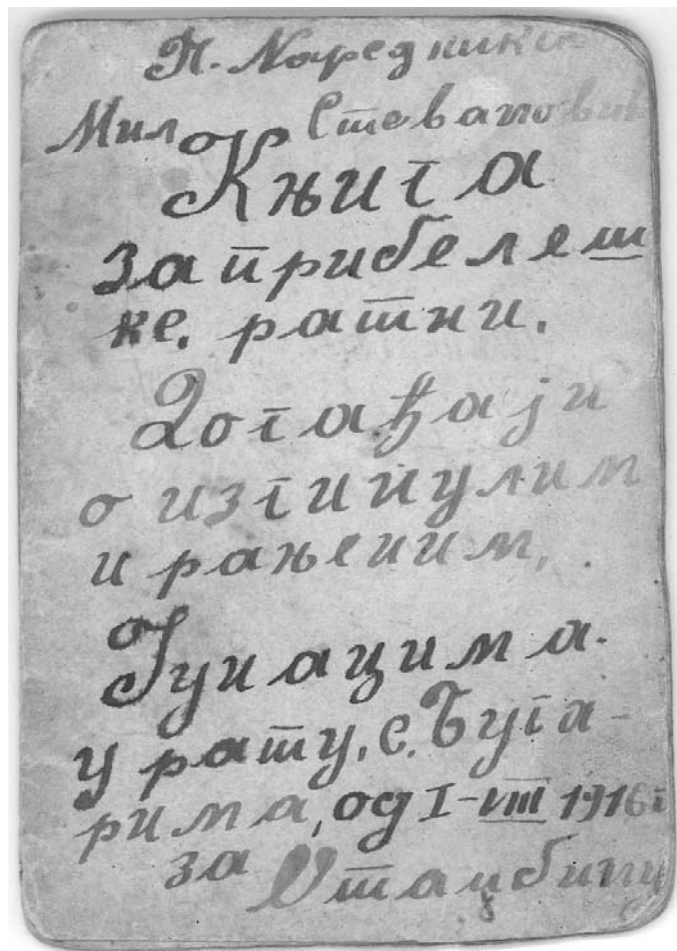 П. Наредники
Мил Стеваново
Књига
за прибелеш
ке. ратни.
Догађаји
о изгинулим
и рањеним,
Јунацима.
у рату. с. Буга-
рима, од I-VIII 1916 г
за